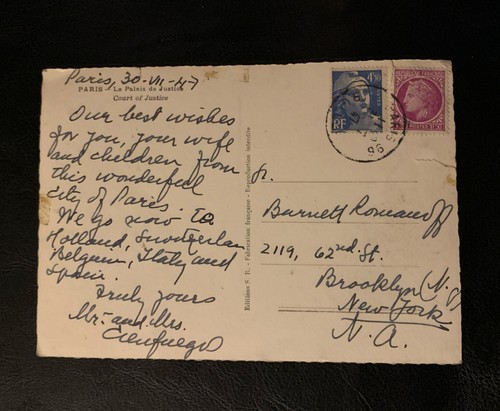 Paris, 30-VII-47
PARIS - La Palais de Justice
Court of Justice
Our best wishes
for you, your wife
and children from
this wonderful
city of Paris.
We go now to
Holland, Switzerlan
Belgium, Italy and
Spain.
Truly yours
Mr. and Mrs.
Cienfuegos
Editions S. R. - Fabrication française - Reproduction interdite
4f50
RF
PARIS
Sr.
Burnett Romanoff
2119, 62nd. St.
Brooklyn (N.y)
New York
N. A.